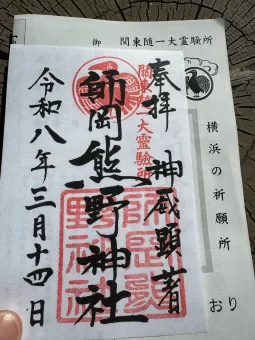 奉拝
神威顕著
関東随一大霊験所
師岡熊野神社
令和八年三月十四日
御
関東随一大霊験所
横浜の祈願所
おり